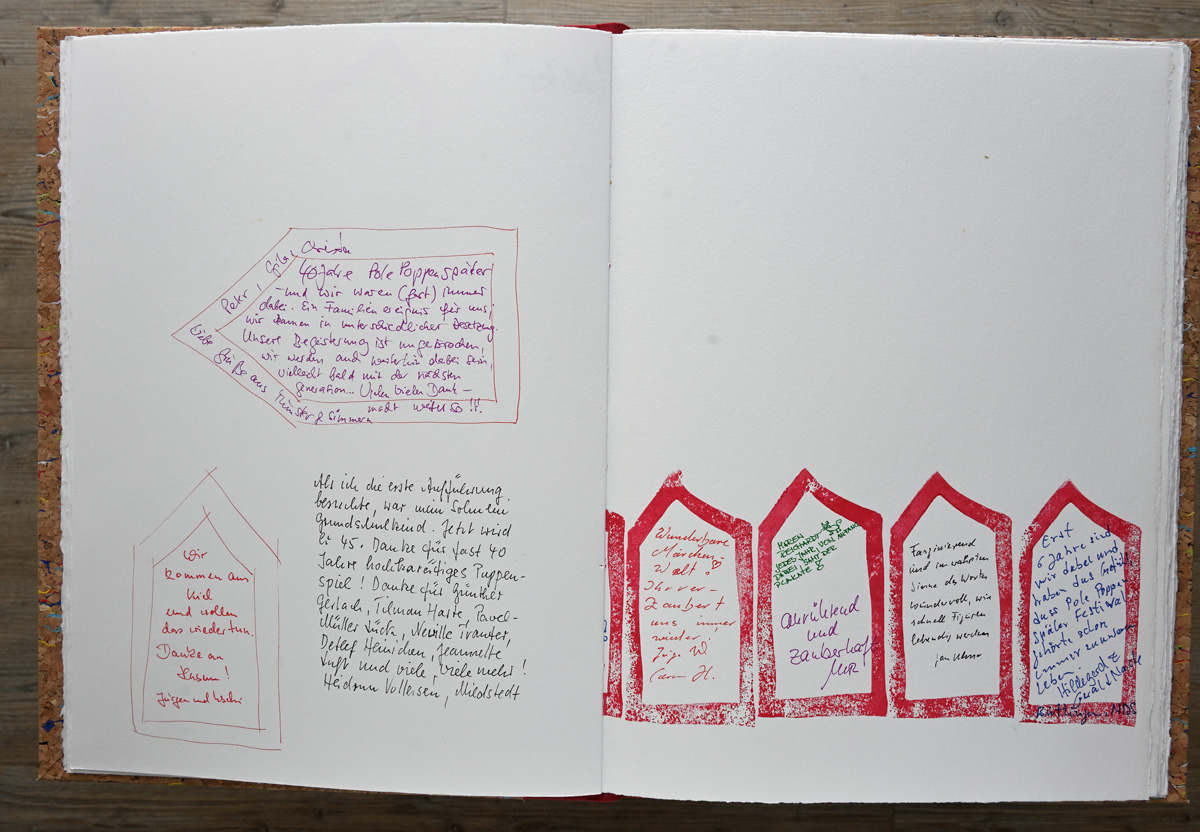 Peter,
40 Jahre Pole Poppenspäler
- und wir waren (fast) immer
dabei. Ein Familienereignis für uns,
wir kamen in unterschiedlicher Besetzung.
Unsere Begeisterung ist ungebrochen,
wir werden auch weiterhin dabei sein,
vielleicht bald mit der nächsten
Generation... Vielen vielen Dank -
macht weiter so !!!
Liebe Grüße aus Münster & Simmern
Wir
kommen aus
Kiel
und wollen
das wieder tun.
Danke an
Husum!
Jürgen und
Als ich die erste Aufführung
besuchte, war mein Sohn ein
Grundschulkind. Jetzt wird
er 45. Danke für fast 40
Jahre hochkarätiges Puppen-
spiel! Danke für Günther
Gerlach, Tilman Harte, Pavel
Müller Rück, Neville Tranter,
Detlef Heinichen, Jeannette
Luft und viele, viele mehr!
Heidrun Volleisen, Mildstedt
Wunderbare
Märchen-
Welt!
Ihr ver-
zaubert
uns immer
wieder!
MAREN
REICHARDT
JEDES JAHR VON ANFANG
DABEI SEIT DER
PLAKATE
anrührend
und
zauberhaft
Faszinierend
und im wahrsten
Sinne des Wortes
wundervoll, wie
schnell Figuren
lebendig werden
Jan
Erst
6 Jahre sind
wir dabei und
haben das Gefühl
dass Pole Poppen-
späler Festival
gehörte schon
immer zu unserem
Leben.
Hildegard &
Gerald
NDS